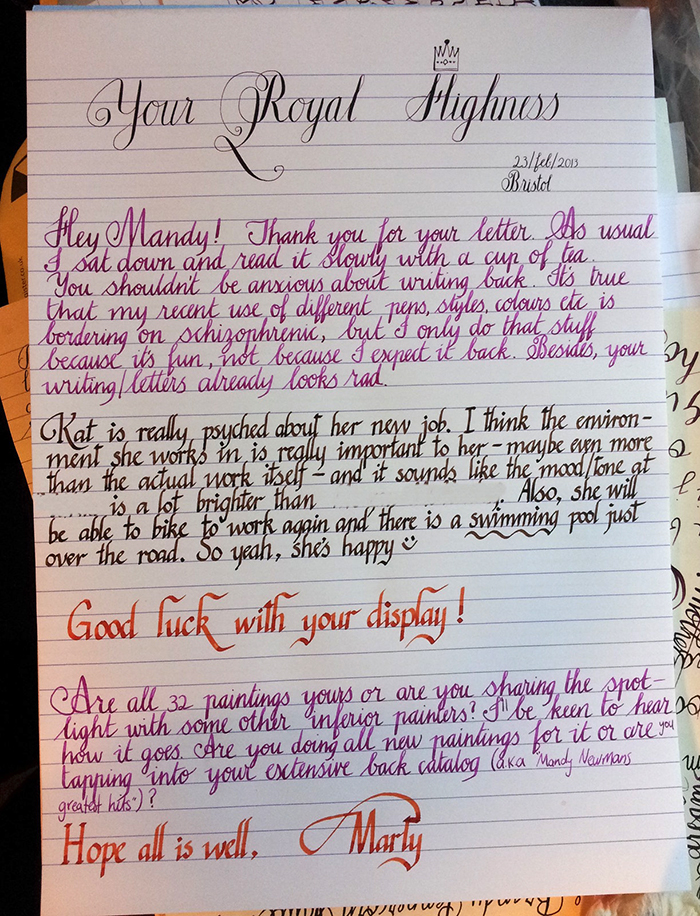 Your Royal Highness
23/feb/2013
Bristol
Hey Mandy! Thank you for your letter. As usual
I sat down and read it slowly with a cup of tea.
You shouldn't be anxious about writing back. It's true
that my recent use of different pens, styles, colours etc is
bordering on schizophrenic, but I only do that stuff
because it's fun, not because I expect it back. Besides, your
writing/letters already looks rad.
Kat is really psyched about her new job. I think the environ-
ment she works in is really important to her - maybe even more
than the actual work itself - and it sounds like the mood/tone at
is a lot brighter than . Also, she will
be able to bike to work again and there is a swimming pool just
over the road. So yeah, she's happy
Good luck with your display!
Are all 32 paintings yours or are you sharing the spot-
light with some other inferior painters? I'll be keen to hear
how it goes. Are you doing all new paintings for it or are you
tapping into your extensive back catalog (a.k.a "Mandy Newmans
greatest hits")?
Hope all is well, Marty